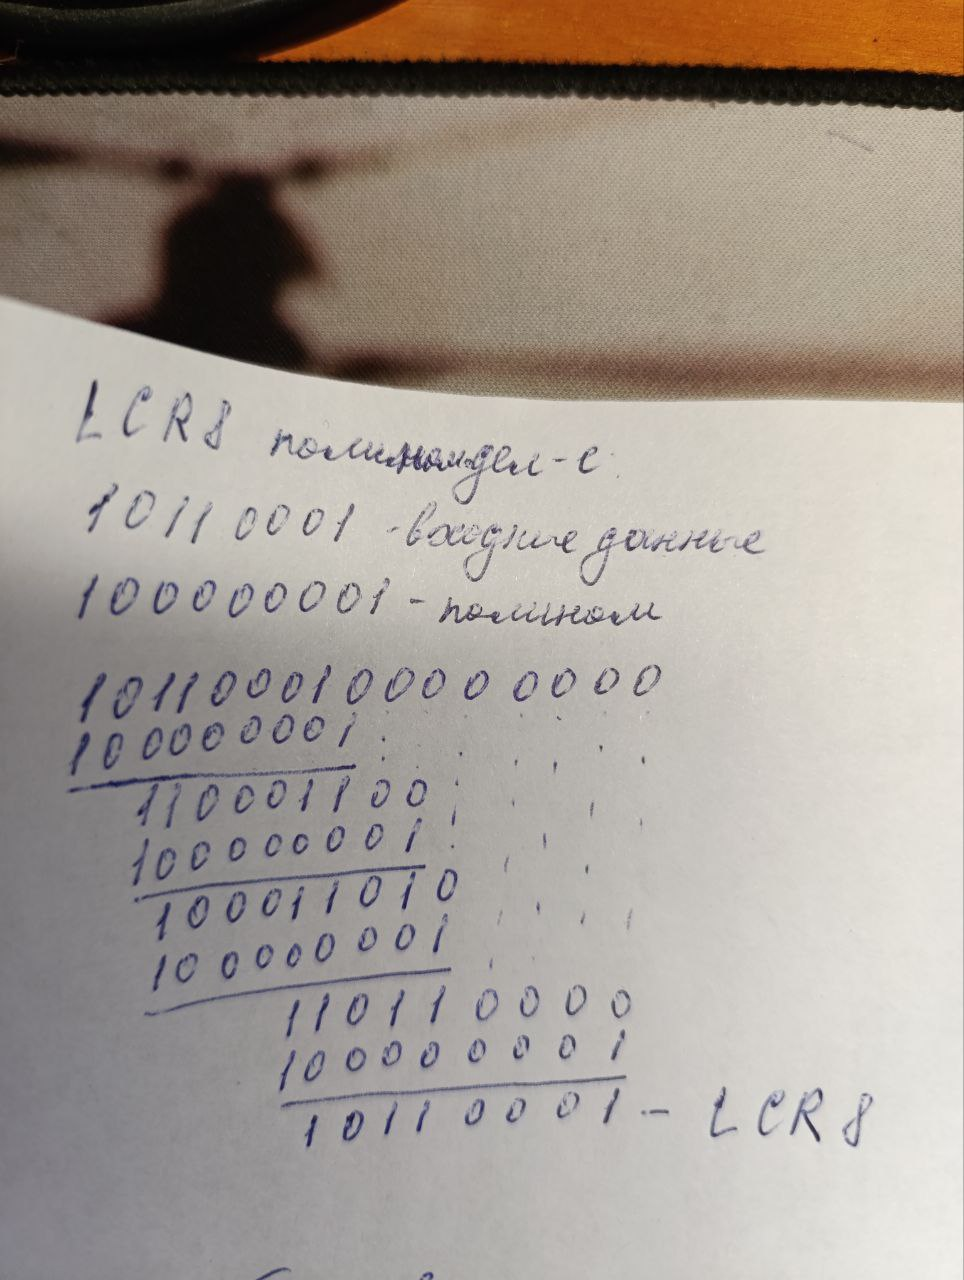 LCR8 полином дел-е
10110001 - входные данные
100000001 - полином
1011000100000000
100000001
110001100
100000001
100011010
100000001
110110000
100000001
10110001 - LCR8